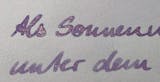 Als Sonnen
unter dem